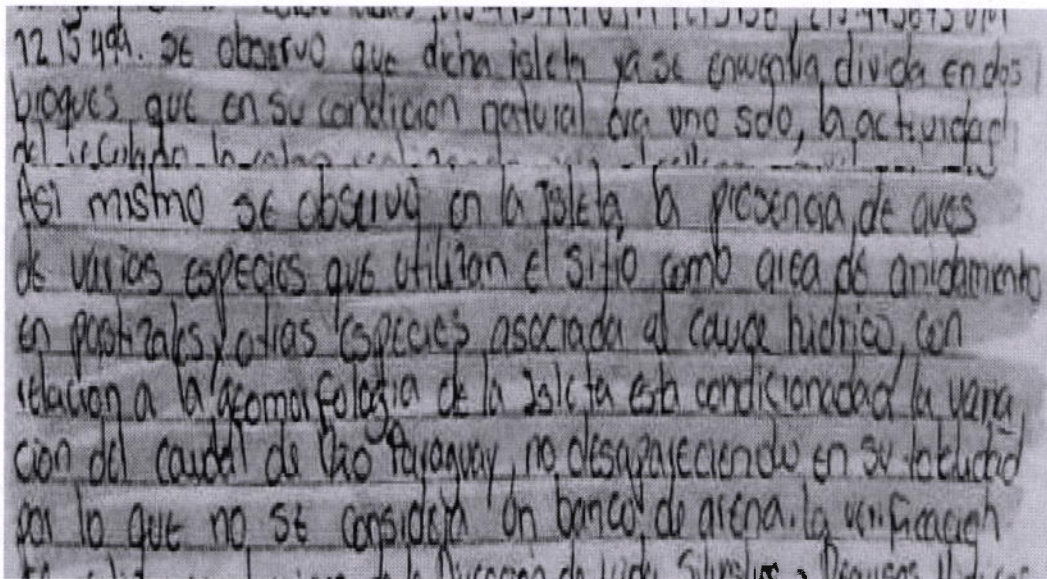 7215499. SE observo que dicha isleta ya se encuentra divida en dos
bloques que en su condicion natural era uno solo, la actividad
Asi mismo se observó en la Isleta, la presencia de aves
de varias especies que utilizan el sitio como area de anidamiento
en pastizales y otras especies asociada al cauce hidrico, con
relacion a la geomorfologia de la Isleta esta condicionadad la varia
cion del caudal de Rio Paraguay, no desapareciendo en su totalidad
por lo que no se considera un banco de arena. la verificacion